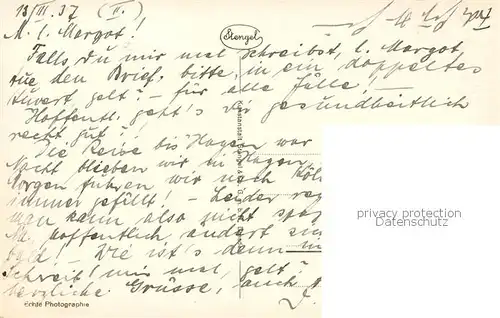 13/III. 37 (II.)
M. l. Margot!
Stengel
Falls du mir mal schreibst, l. Margot,
tue den Brief, bitte, in ein doppeltes
Kuvert gelt? - für alle Fälle. -
Hoffentl. geht's dir gesundheitlich
recht gut?!
Die Reise bis Hagen war
Nacht blieben wir in Hagen,
Morgen fuhren wir nach Köln
immer gefüllt! - Leider reg
man kann also nicht spaz
Na, hoffentlich ändert sich
bald! - Wie ist's denn
Schreib' mir mal, gelt?
herzliche Grüsse, auch
Echte Photographie
privacy protection
Datenschutz